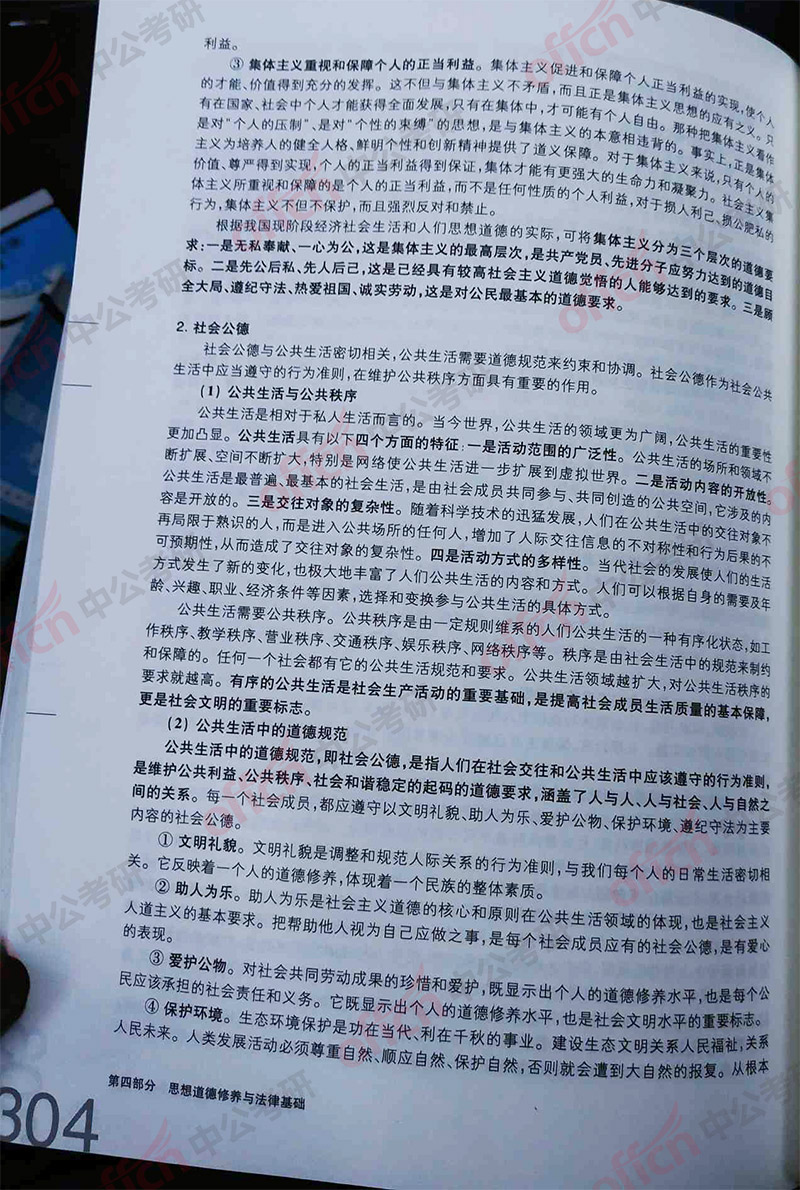 利益。
③ 集体主义重视和保障个人的正当利益。集体主义促进和保障个人正当利益的实现,使个人
的才能、价值得到充分的发挥。这不但与集体主义不矛盾,而且正是集体主义思想的应有之义。只
有在国家、社会中个人才能获得全面发展,只有在集体中,才可能有个人自由。那种把集体主义看作
是对“个人的压制”、是对“个性的束缚”的思想,是与集体主义的本意相违背的。事实上,正是集体
主义为培养人的健全人格、鲜明个性和创新精神提供了道义保障。对于集体主义来说,只有个人的
价值、尊严得到实现,个人的正当利益得到保证,集体才能有更强大的生命力和凝聚力。社会主义集
体主义所重视和保障的是个人的正当利益,而不是任何性质的个人利益,对于损人利己、损公肥私的
行为,集体主义不但不保护,而且强烈反对和禁止。
根据我国现阶段经济社会生活和人们思想道德的实际,可将集体主义分为三个层次的道德要
求:一是无私奉献、一心为公,这是集体主义的最高层次,是共产党员、先进分子应努力达到的道德目
标。二是先公后私、先人后己,这是已经具有较高社会主义道德觉悟的人能够达到的要求。三是顾
全大局、遵纪守法、热爱祖国、诚实劳动,这是对公民最基本的道德要求。
2. 社会公德
社会公德与公共生活密切相关,公共生活需要道德规范来约束和协调。社会公德作为社会公共
生活中应当遵守的行为准则,在维护公共秩序方面具有重要的作用。
(1) 公共生活与公共秩序
公共生活是相对于私人生活而言的。当今世界,公共生活的领域更为广阔,公共生活的重要性
更加凸显。公共生活具有以下四个方面的特征:一是活动范围的广泛性。公共生活的场所和领域不
断扩展、空间不断扩大,特别是网络使公共生活进一步扩展到虚拟世界。二是活动内容的开放性。
公共生活是最普遍、最基本的社会生活,是由社会成员共同参与、共同创造的公共空间,它涉及的内
容是开放的。三是交往对象的复杂性。随着科学技术的迅猛发展,人们在公共生活中的交往对象不
再局限于熟识的人,而是进入公共场所的任何人,增加了人际交往信息的不对称性和行为后果的不
可预期性,从而造成了交往对象的复杂性。四是活动方式的多样性。当代社会的发展使人们的生活
方式发生了新的变化,也极大地丰富了人们公共生活的内容和方式。人们可以根据自身的需要及年
龄、兴趣、职业、经济条件等因素,选择和变换参与公共生活的具体方式。
公共生活需要公共秩序。公共秩序是由一定规则维系的人们公共生活的一种有序化状态,如工
作秩序、教学秩序、营业秩序、交通秩序、娱乐秩序、网络秩序等。秩序是由社会生活中的规范来制约
和保障的。任何一个社会都有它的公共生活规范和要求。公共生活领域越扩大,对公共生活秩序的
要求就越高。有序的公共生活是社会生产活动的重要基础,是提高社会成员生活质量的基本保障,
更是社会文明的重要标志。
(2) 公共生活中的道德规范
公共生活中的道德规范,即社会公德,是指人们在社会交往和公共生活中应该遵守的行为准则,
是维护公共利益、公共秩序、社会和谐稳定的起码的道德要求,涵盖了人与人、人与社会、人与自然之
间的关系。每一个社会成员,都应遵守以文明礼貌、助人为乐、爱护公物、保护环境、遵纪守法为主要
内容的社会公德。
① 文明礼貌。文明礼貌是调整和规范人际关系的行为准则,与我们每个人的日常生活密切相
关。它反映着一个人的道德修养,体现着一个民族的整体素质。
② 助人为乐。助人为乐是社会主义道德的核心和原则在公共生活领域的体现,也是社会主义
人道主义的基本要求。把帮助他人视为自己应做之事,是每个社会成员应有的社会公德,是有爱心
的表现。
③ 爱护公物。对社会共同劳动成果的珍惜和爱护,既显示出个人的道德修养水平,也是每个公
民应该承担的社会责任和义务。它既显示出个人的道德修养水平,也是社会文明水平的重要标志。
④ 保护环境。生态环境保护是功在当代、利在千秋的事业。建设生态文明关系人民福祉,关系
人民未来。人类发展活动必须尊重自然、顺应自然、保护自然,否则就会遭到大自然的报复。从根本
第四部分 思想道德修养与法律基础
304
offcn 中公考研